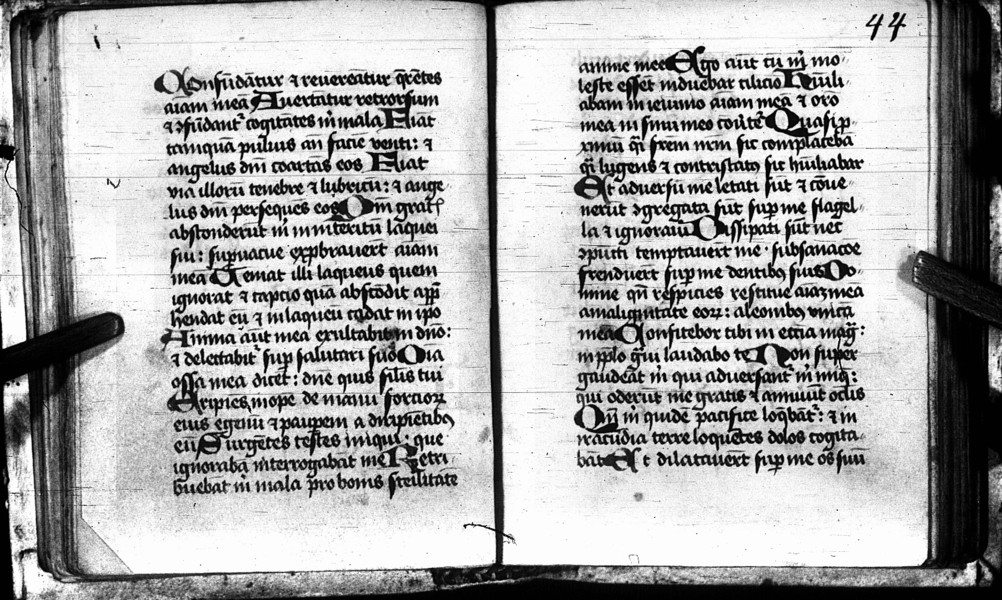 Confūdātur ⁊ revereātur q̄rētes
aīam meā Avertātur retrorsum
⁊ ↄfūdant᷑ cogitātes m̄ mala Fiāt
tamquā pulvis an̄ faciē venti: ⁊
angelus dnī coartās eos Fiat
via illorū tenebre ⁊ lubricū: ⁊ ange
lus dnī perseques eos Qm̄ grat᷑
absconderūt m̄ interitū laquei
sui: supvacue exprobravert̄ aīam
meā Veniat illi laqueus quem
ignorat ⁊ captio quā abscōdit app̄
hendat eū ⁊ in laqueū cadat in ip̄o
Anima aūt mea exultabit in dn̄o:
⁊ delectabit᷑ sup̄ salutari suo Oīa
ossa mea dicēt: dn̄e quis silis tui
Eripies inope de manu forcioꝝ
eius egenū ⁊ paupem a diripiētibꝰ
eū Surgētes testes iniqui: que
ignorabā interrogabāt me Retri
buebāt m̄ mala pro bonis sterilitatē
44
anime mee Ego aūt cū m̄ mo
leste essēt induebar cilicio Humili
abam in ieiunio aīam meā ⁊ oro
mea in sinu meo cōv̄tet᷑ Quasi p
ximū q̄i frēm nr̄m sic complacebā
q̄i lugens ⁊ contristatꝰ sic hūiliabar
Et adversū me letati sūt ⁊ cōve
nerūt ↄgregata sūt sup̄ me flagel
la ⁊ ignoravi Dissipati sūt nec
ↄpūcti temptavert̄ me subsanacōe
frenduert̄ sup̄ me dentibꝰ suis Do
mine qn̄ respicies restitue aīaꝫ meā
a malignitate eoꝝ: a leonibꝰ unicā
meā Confitebor tibi in ecc̄ia maḡ:
in pp̄lo g̃vi laudabo te Non super
gaudeāt m̄ qui adversant᷑ m̄ iniq̄:
qui oderūt me gratis ⁊ annuūt oc̄lis
Qm̄ m̄ quidē pacifice loq̄bāt᷑: ⁊ in
iracūdia terre loquētes dolos cogita
bāt Et dilatavert̄ sup̄ me os suū